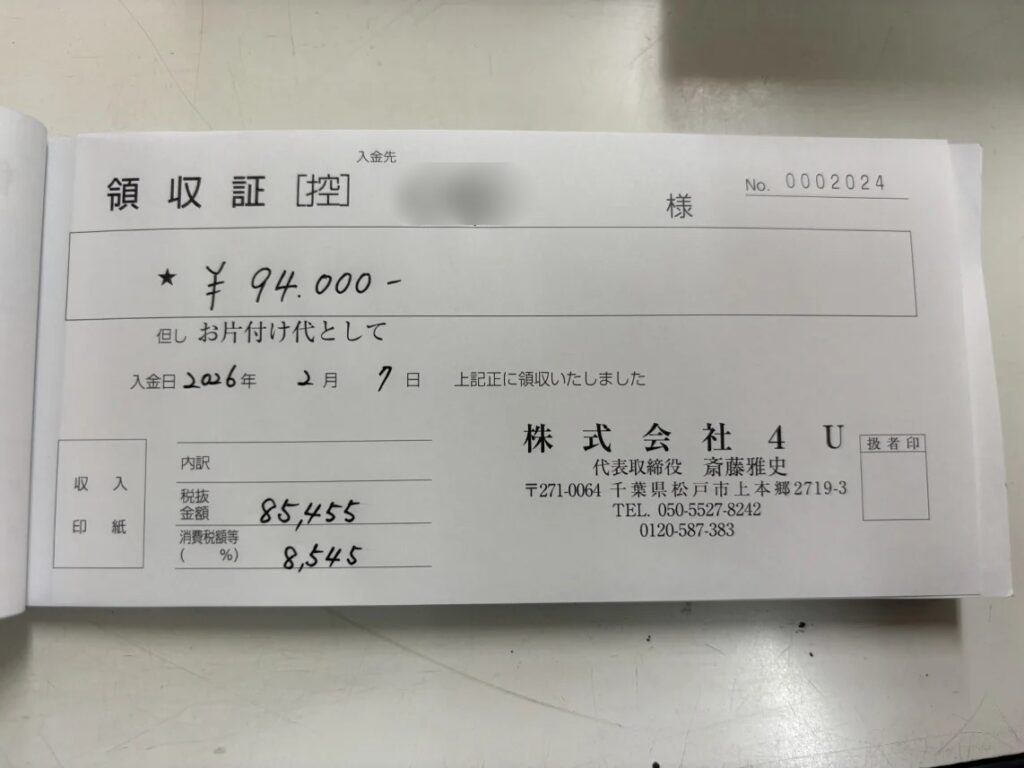 入金先
領収証 [控] 様 No. 0002024
★ ¥ 94.000-
但し お片付け代として
入金日 2026年 2月 7日 上記正に領収いたしました
株式会社4U
代表取締役 斎藤雅史
〒271-0064 千葉県松戸市上本郷2719-3
TEL. 050-5527-8242
0120-587-383
扱者印
収入
印紙
内訳
税抜
金額 85,455
消費税額等
( %) 8,545